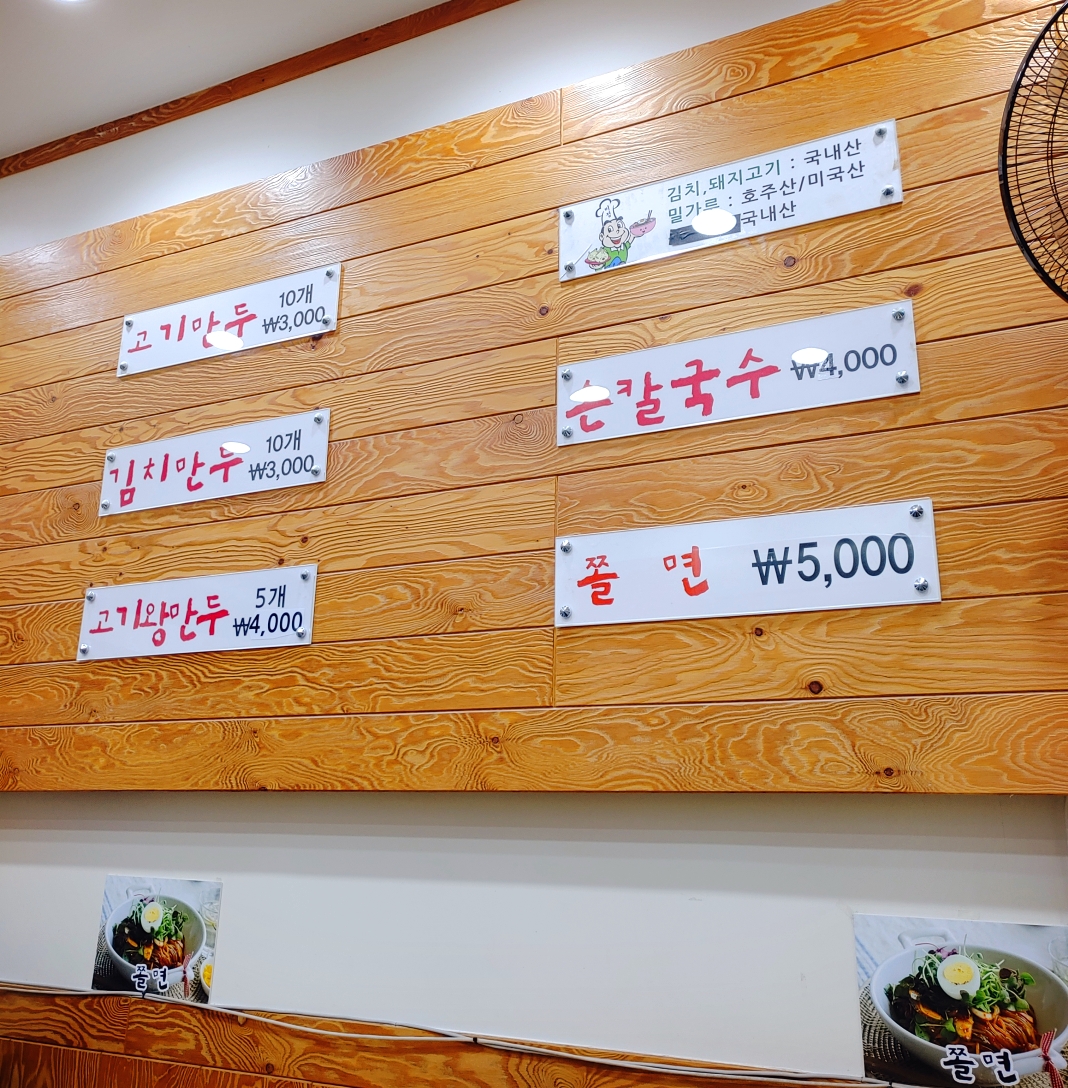 고기만두
10개
₩3,000
김치만두
10개
₩3,000
고기왕만두
5개
₩4,000
김치,돼지고기 : 국내산
밀가루 : 호주산/미국산
국내산
손칼국수 ₩4,000
쫄 면 ₩5,000
쫄면
쫄면